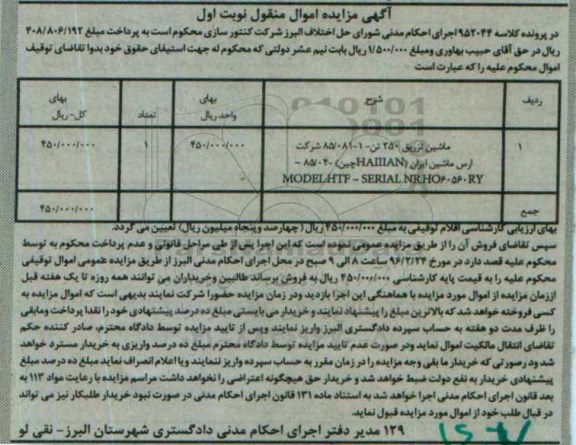 آگهی مزایده اموال منقول نوبت اول
در پرونده کلاسه ۹۵۲۰۴۴ اجرای احکام مدنی شورای حل اختلاف البرز شرکت کنتور سازی محکوم است به پرداخت مبلغ ۴۰۸/۸۰۶/۱۹۲
ریال در حق آقای حبیب بهاوری ومبلغ ۱/۵۰۰/۰۰۰ ریال بابت نیم عشر دولتی که محکوم له جهت استیفای حقوق خود بدوا تقاضای توقیف
اموال محکوم علیه را که عبارت است
ردیف شرح بهای واحد ریال تعداد بهای کل- ریال
۱ ماشین تزریق ۲۵۰ تن- ۱-۸۵/۰۸۱ شرکت ۴۵۰/۰۰۰/۰۰۰ ۱ ۴۵۰/۰۰۰/۰۰۰
ارس ماشین ایران (HAIIIANچین) -۸۵/۰۴ -
MODEL.HTF – SERIAL NR.HO۶۰۵۶۰RY
جمع ۴۵۰/۰۰۰/۰۰۰
بهای ارزیابی کارشناسی اقلام توقیفی به مبلغ ۴۵۰/۰۰۰/۰۰۰ ریال (چهارصد وپنجاه میلیون ریال) تعیین می گردد.
سپس تقاضای فروش آن را از طریق مزایده عمومی نموده است که این اجرا پس از طی مراحل قانونی و عدم پرداخت محکوم به توسط
محکوم علیه قصد دارد در مورخ ۹۶/۲/۲۴ ساعت ۸ الی ۹ صبح در محل اجرای احکام مدنی البرز از طریق مزایده عمومی اموال توقیفی
محکوم علیه را به قیمت پایه کارشناسی ۴۵۰/۰۰۰/۰۰۰ ریال به فروش برساند طالبین وخریداران می توانند همه روزه تا یک هفته قبل
اززمان مزایده از اموال مورد مزایده با هماهنگی این اجرا بازدید ودر زمان مزایده حضورا شرکت نمایند بدیهی است که اموال مزایده به
کسی فروخته خواهد شد که بالاترین مبلغ را پیشنهاد نمایند و خریدار می بایستی مبلغ ده درصد پیشنهادی خود را نقدا پرداخت ومابقی
را ظرف مدت دو هفته به حساب سپرده دادگستری البرز واریز نمایند وپس از تایید مزایده توسط دادگاه محترم، صادر کننده حکم
تقاضای انتقال مالکیت اموال نماید ودر صورت عدم تایید مزایده توسط دادگاه محترم مبلغ ده درصد واریزی به خریدار مسترد خواهد
شد ودرصورتی که خریدار ما بقی وجه مزایده را در زمان مقرر به حساب سپرده واریز ننمایند ویا اعلام انصراف نماید مبلغ ده درصد مبلغ
پیشنهادی خریدار به نفع دولت ضبط خواهد شد و خریدار حق هیچگونه اعتراضی را نخواهد داشت مراسم مزایده با رعایت مواد ۱۱۳ به
بعد قانون اجرای احکام مدنی اجرا خواهد شد به استناد ماده ۱۳۱ قانون اجرای احکام مدنی در صورت نبود خریدار طلبکار نیز می تواند
در قبال طلب خود از اموال مورد مزایده قبول نماید.
۱۲۹ مدیر دفتر اجرای احکام مدنی دادگستری شهرستان البرز- نقی لو